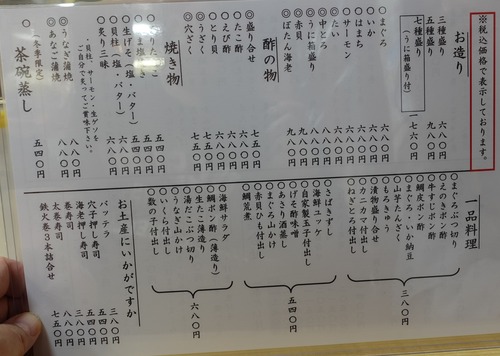 ※税込価格で表示しております。
お造り
三種盛り 六八〇円
五種盛り 九八〇円
七種盛り (うに箱盛り付) 一七六〇円
〇まぐろ
〇いか
〇はまち
〇サーモン
〇たい
◎中とろ
◎うに箱盛り
◎赤貝
◎ぼたん海老
酢の物
◎盛りあわせ 七五〇円
〇たこ酢
〇えび酢
〇とり貝
◎うざく
◎穴ざく
焼き物
〇生げそ(塩・バター)
〇貝柱(塩・バター)
〇炙り三昧
・貝柱、サーモン、生ゲソを
ご自分で炙ってご賞味下さい。
◎うなぎ蒲焼 八八〇円
◎あなご蒲焼 八八〇円
茶碗蒸し
(冬季限定) 五四〇円
一品料理
〇まぐろぶつ切り
〇えのきポン酢
〇牛すじポン酢
〇鯛皮ポン酢
〇まぐろ・いか納豆
〇山芋たんざく
〇もろきゅう
〇漬物盛り合せ
〇カニカマ付出し
〇ねぎとろ付出し
三八〇円
〇さばきずし
〇海鮮ユッケ
〇自家製玉子付出し
〇げそ酢味噌
〇あさり酒蒸し
〇まぐろ山かけ
〇赤貝ひも付出し
〇鯛荒煮
五四〇円
〇海鮮サラダ
〇鯛ポン酢(薄造り)
〇生たこ薄造り
〇湯だこぶつ切り
〇うなぎ山かけ
〇いくら付出し
〇数の子付出し
六八〇円
お土産にいかがですか
バッテラ 三八〇円
穴子押し寿司 五四〇円
海老押し寿司 五四〇円
巻寿司 八八〇円
太巻寿司 八八〇円
鉄火巻3本詰合せ 七五〇円